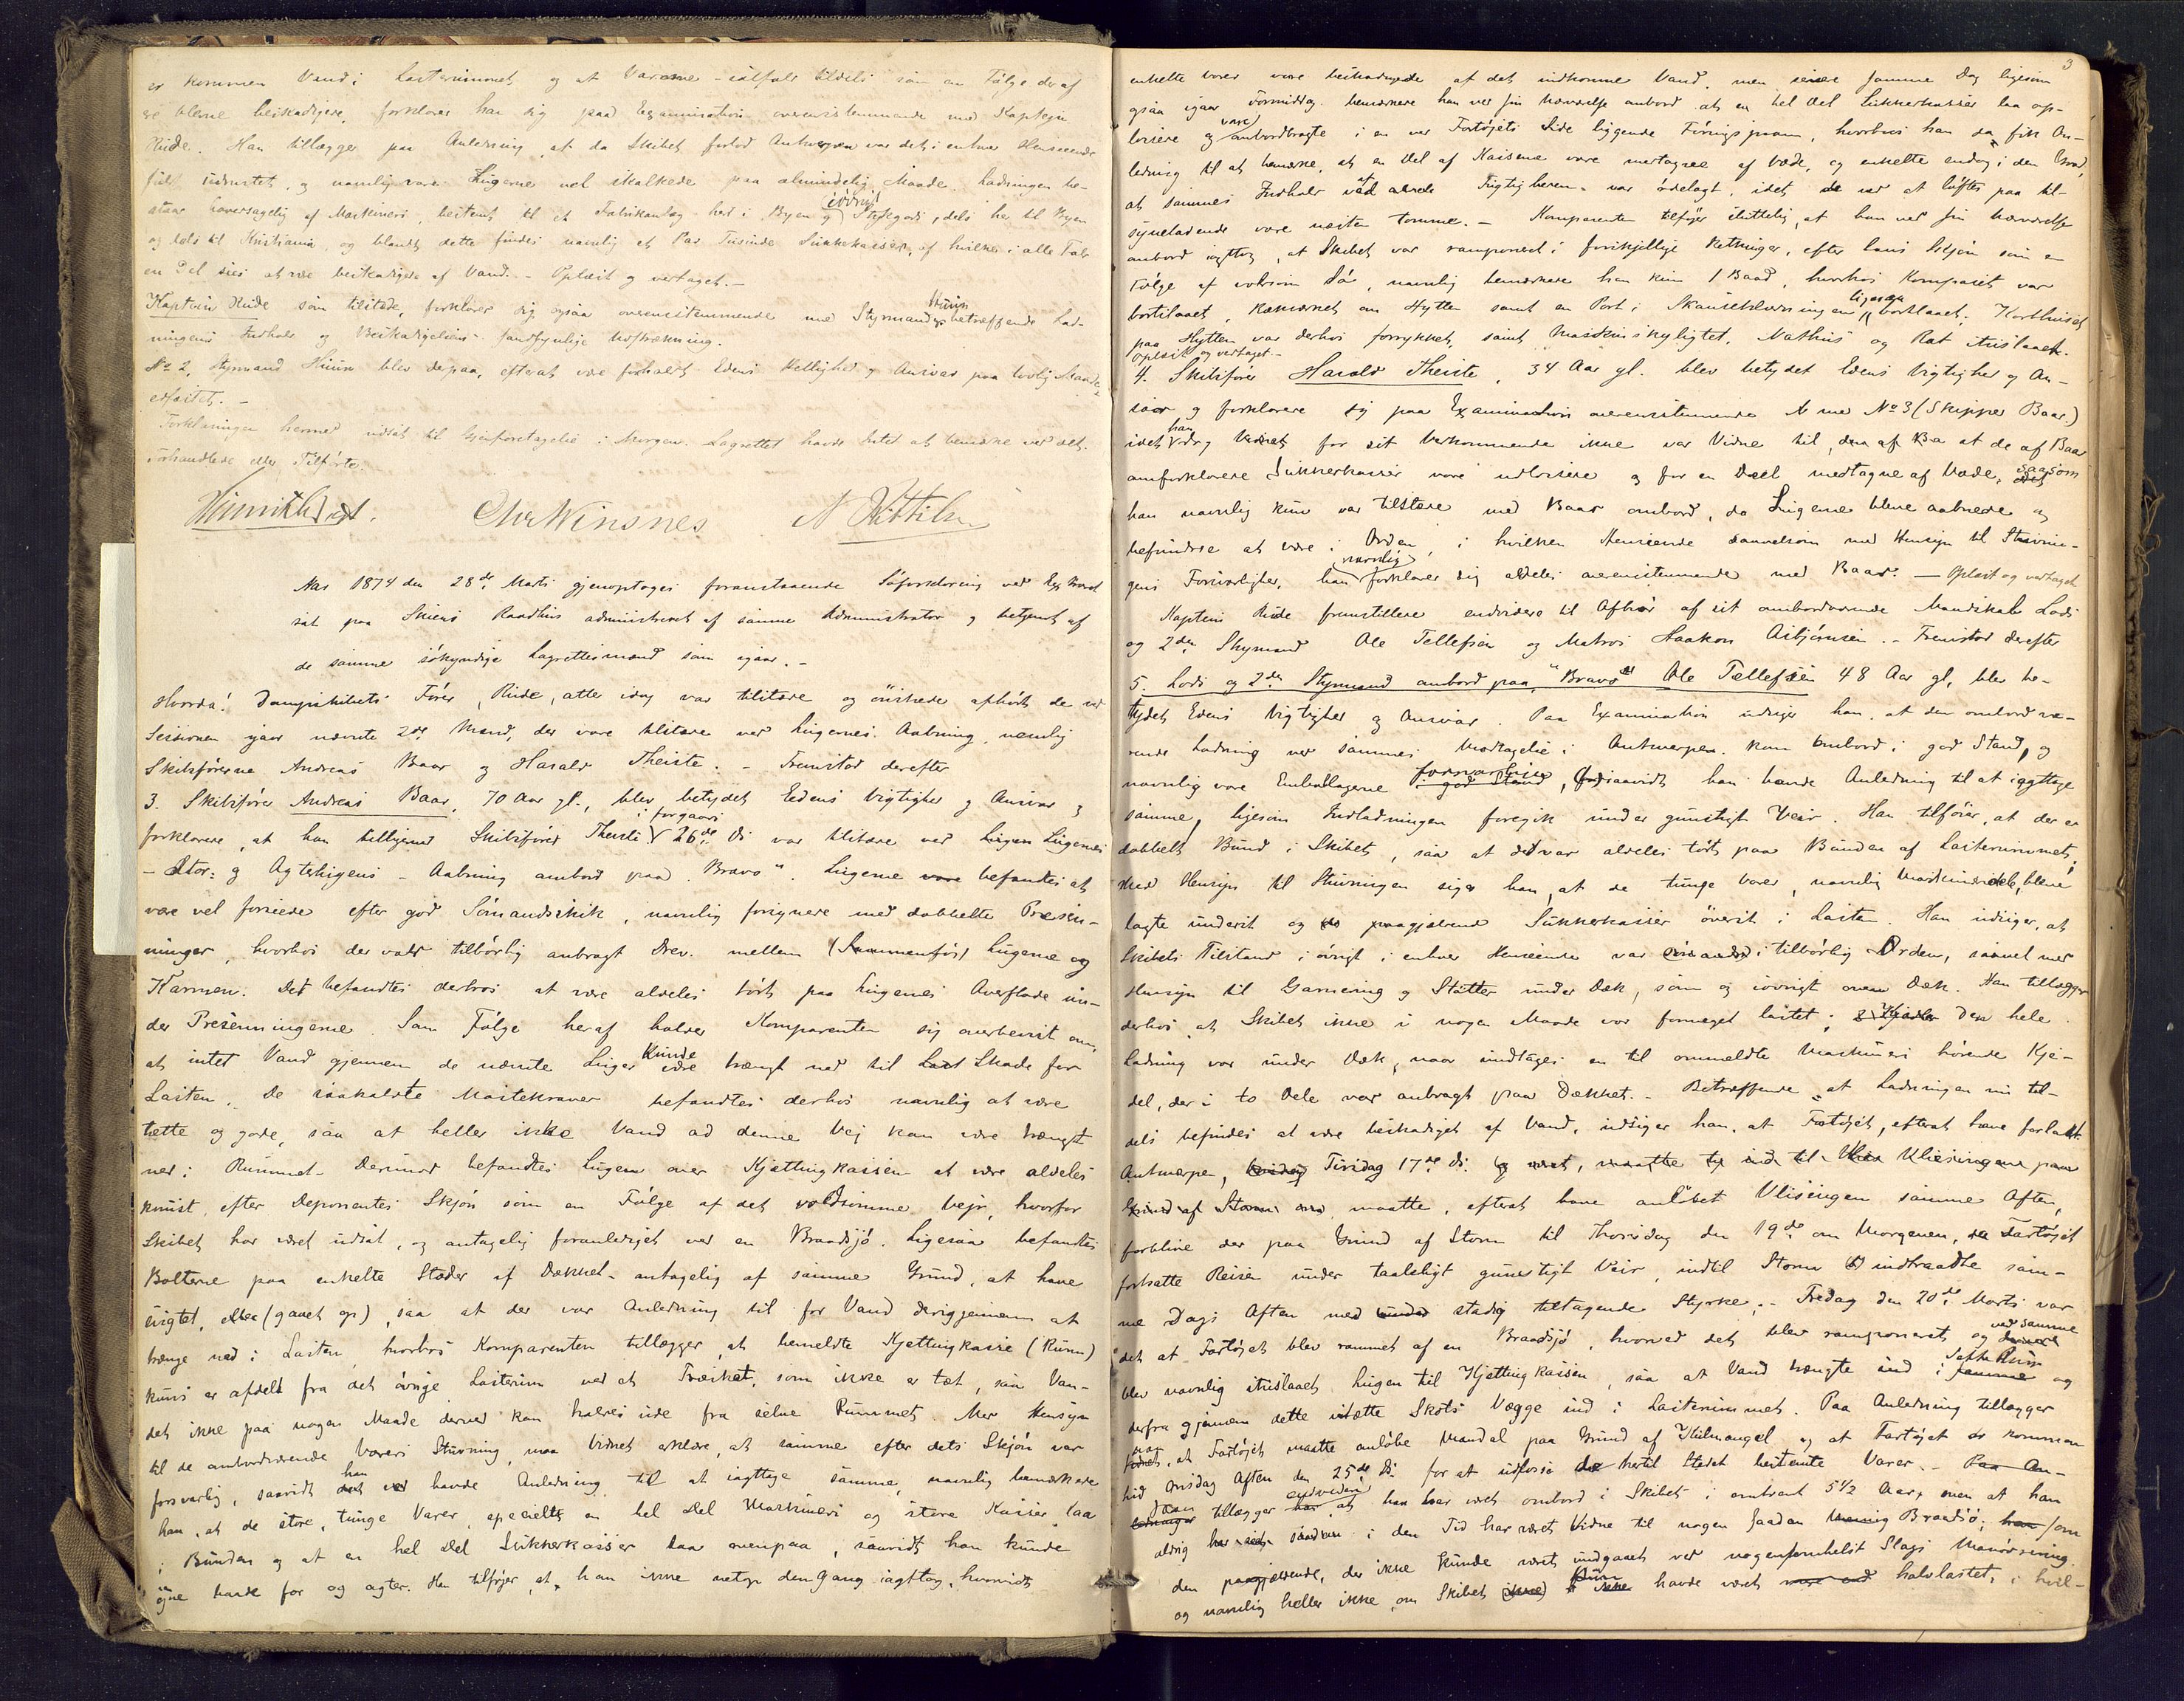 er kommen Vand i Lasterummet og at Varerne - ialfald tildels som en Følge deraf
ere blevne beskadigede, forklarer han sig paa Examination overensstemmende med Kaptejn
Riide. Han tillægger paa Anledning, at da Skibet forlod Antwerpen var det i enhver Henseende
fuldt udrustet, og navnlig vare Lugerne vel skalkede paa almindelig Maade. Ladningen be-
staar hovedsagelig af Maskineri, bestemt til et Fabrikanlæg her i Byen og øvrigt Stykgods, dels her til Byen
og dels til Kristiania, og blandt dette findes navnlig et Par Tusinde Sukkerkasser, af hvilke i alle Fald
en Del sees at være beskadiget af Vand. - Oplæst og vedtaget. -
Kaptein Riide som tilstede, forklarer sig ogsaa overensstemmende med Styrmand Huun betræffende Lad-
ningens Indhold og Beskadigelsens sandsynlige Udstrækning.
No 2, Styrmand Huun blev derpaa, efterat være foreholdt Edens Hellighed og Ansvar paa lovlig Maade
edfæstet. -
Forklaringen hermed udsat til Gjenforetagelse i Morgen. Lagrettet havde Intet at bemærke ved det
Forhandlede eller Tilførte.
Chr Winsnes N Kittilsen
Aar 1874 den 28de Marts gjenoptoges foranstaaende Søforklaring ved Ex. Ret
sat paa Skiens Raadhus administreret af samme Administrator og betjent af
de samme søkyndige Lagrettesmænd som igaar. -
Hvorda! Dampskibets Fører, Riide, atter idag var tilstede og ønskede afhørt de ved
Sessionen igaar nævnte 2de Mænd, der vare tilstede ved Lugernes Aabning, nemlig
Skibsførerne Andreas Baar og Harald Theiste. - Fremstod derefter
3. Skibsfører Andreas Baar, 70 Aar gl., blev betydet Edens Vigtighed og Ansvar og
forklarede, at han tilligemed Skibsfører Theiste iforgaars 26de ds var tilstede ved Lugen Lugernes
- Stor- og Agterlugens - Aabning ombord paa "Bravo". Lugerne vare befandtes at
være vel forsede efter god Sømandsskik, navnlig forsynede med dobbelte Presen-
ninger, hvorhos der var tilbørlig anbragt Drev mellem (Sammenføi) Lugerne og
Karmen. Det befandtes derhos at være aldeles tørt paa Lugernes Overflade un-
der Presenningerne. Som Følge heraf holder Komparenten sig overbevist om,
at intet Vand gjennem de nævnte Luger kunde være trængt ned til Last Skade for
Lasten. De saakaldte Mastekraver befandtes derhos navnlig at være
tætte og gode, saa at heller ikke Vand ad denne Vej kan være trængt
ned i Rummet. Derimod befandtes Lugen over Kjættingkassen at være aldeles
knust, efter Deponentens Skjøn som en Følge af det voldsomme Vejr, hvorfor
Skibet har været udsat, og antagelig foranlediget ved en Braadsjø. Ligesaa befandtes
Bolterne paa enkelte Steder af Dækket - antagelig af samme Grund, at have
svigtet, eller (gaaet op), saa at der var Anledning til for Vand derigjennem at
trænge ned i Lasten, hvorhos Komparenten tillægger, at bemeldte Kjættingkasse (Rum)
kuns er afdelt fra det øvrige Lasterum ved et Træskot, som ikke er tæt, saa Van-
det ikke paa nogen Maade derved kan holdes ude fra selve Rummet. Med Hensyn
til de ombordværende Varers Stuvning, maa Vidnet erklære, at samme efter dets Skjøn var
forsvarlig, saavidt han havde Anledning til at iagttage samme, navnlig bemærkede
han, at de store, tunge Varer, specielt en hel Del Maskineri og større Kasser, laa
i Bunden og at en hel Del Sukkerkasser laa ovenpaa, saavidt han kunde
øjne baade for og agter. Han tilføjer, at han ikke netop den Gang iagttog, hvorvidt
3
enkelte Varer vare beskadigede af det indkomne Vand, men senere samme Dag ligesom
ogsaa igaar Formiddag bemærkede han ved sin Nærværelse ombord, at en hel Del Sukkerkasser laa op-
lossede og vare ombordbragte i en ved Fartøjets Side liggende Føringspram, hvorhos han da fik An-
ledning til at bemærke, at en Del af Kasserne vare medtagne af Væde, og enkelte endog i den Grad,
at sammes Indhold af Fugtigheden var ødelagt, idet de ved at løftes paa til-
syneladende vare næsten tomme. - Komparenten tilføjer sluttelig, at han ved sin Nærværelse
ombord iagttog, at Skibet var ramponert i forskjellige Retninger, efter hans Skjøn som en
Følge af voldsom Sø, navnlig bemærkede han kun 1 Baad, hvorhos Kompasset var
bortslaaet, Rækværket om Hytten samt en Port i Skanseklædningen ligesaa bortslaaet; Korthuset
paa Hytten var derhos forrykket, samt Maskinskylightet, Nathus og Rat itusslaaet.
Oplæst og vedtaget -
4. Skibsfører Harald Theiste, 34 Aar gl. blev betydet Edens Vigtighed og An-
svar og forklarede sig paa Examination overensstemmende med No 3 (Skipper Baar)
idet han dog Vidnet for sit Vedkommende ikke var Vidne til, at de af Baar
omforklarede Sukkerkasser vare udlossede og for en Deel medtagne af Væde, saasom
han navnlig kun var tilstede med Baar ombord, da Lugerne bleve aabnede og
befundne at være i Orden, i hvilken Henseende saavelsom med Hensyn til Stuvnin-
gens Forsvarlighed, han navnlig forklarer sig aldeles overensstemmende med Baar. - Oplæst og vedtaget
Kaptein Riide fremstillede endvidere til Afhør af sit ombordværende Mandskab Lods
og 2den Styrmand Ole Tellefsen og Matros Haakon Asbjørnsen. - Fremstod derefter
5. Lods og 2den Styrmand ombord paa "Bravo" Ole Tellefsen 48 Aar gl, blev be-
tydet Edens Vigtighed og Ansvar. Paa Examination udsiger han, at den ombord væ-
rende Ladning ved sammes Modtagelse i Antwerpen kom ombord i god Stand, og
navnlig vare Emballagerne forsvarlige i god Stand, forsaavidt han havde Anledning til at iagttage
samme, ligesom Indladningen foregik under gunstigt Veir. Han tilføier, at der er
dobbelt Bund i Skibet, saa at det var aldeles tørt paa Bunden af Lasterummet;
Med Hensyn til Stuvningen siger han, at de tunge Varer, navnlig Maskineridele, bleve
lagte underst og de paagjældende Sukkerkasser øverst i Lasten. Han udsiger, at
Skibets Tilstand i øvrigt i enhver Henseende var i tilbørlig Orden, saavel med
Hensyn til Garnering og Støtter under Dæk, som og iøvrigt over Dæk. Han tillægger
derhos, at Skibet ikke i nogen Maade var formeget lastet; Den hele
Ladning var under Dæk, naar undtages en til ommeldte Maskineri hørende Kje-
del, der i to Dele var anbragt paa Dækket. - Betræffende at Ladningen nu til-
dels befindes at være beskadiget af Vand, udsiger han, at Fartøjet, efterat have forladt
Antwerpen, Tirsdag 17de ds. Vlissingen paa
Grund af Storm maatte, efterat have anløbet Vlissingen samme Aften,
forblive der paa Grund af Storm til Thorsdag den 19de om Morgenen, da Fartøjet
fortsatte Reisen under taaleligt gunstigt Veir, indtil Storm indtraadte sam-
me Dags Aften med stadig tiltagende Styrke. - Fredag den 20de Marts var
det at Fartøjet blev rammet af en Braadsjø, hvorved det blev ramponeret, og ved samme
blev navnlig itusslaaet Lugen til Kjættingkassen, saa at Vand trængte ind i dette Rum og
derfra gjennem dette utætte Skots Vægge ind i Lasterummet. Paa Anledning tillægger
han, at Fartøjet maatte anløbe Mandal paa Grund af Kulmangel og at Fartøjet er kommen
hid Onsdag Aften den 25de ds. for at udlosse de hertil Stedet bestemte Varer. - Paa An-
ledninger tillægger han endvidere at han har været ombord i Skibet i omtrent 5 1/2 Aar, men at han
aldrig i den Tid har været Vidne til nogen saadan Braadsjø, som
den paagjældende, der ikke kunde været undgaaet ved nogensomhelst Slags Manøvrering
og navnlig heller ikke, om Skibet kun havde været halvlastet, i hvil-